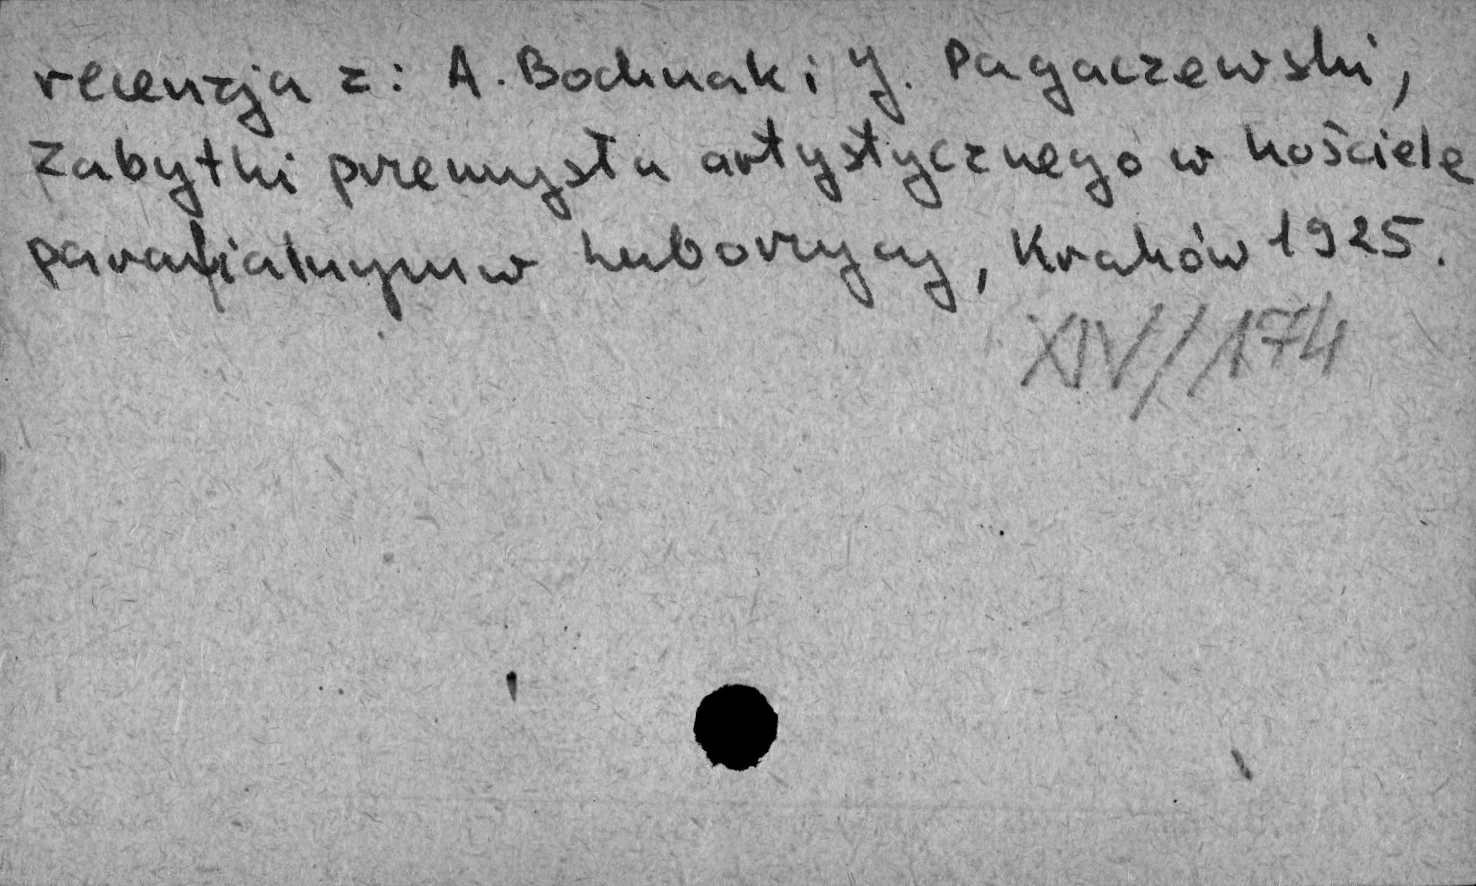 recenzja z: A. Bochnak i J. Pagaczewski,
Zabytki przemysłu artystycznego w kościele
parafialnym w Luborzycy, Kraków 1925.
XIV//174